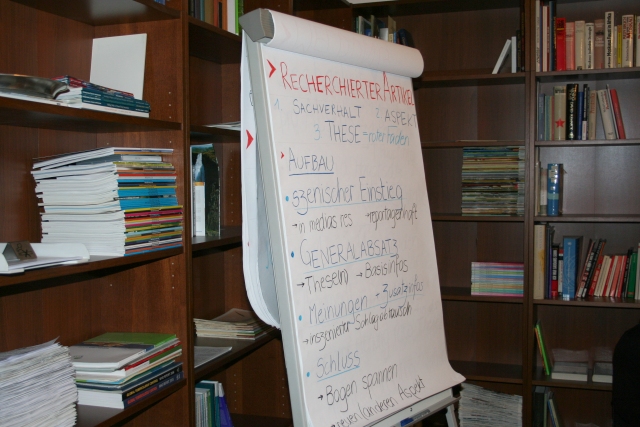 RECHERCHIERTER ARTIKEL
1. SACHVERHALT 2. ASPEKT
3. THESE = roter Faden
AUFBAU
Szenischer Einstieg
→ in medias res → reportagenhaft
GENERALABSATZ
→ These(n) → Basisinfos
Meinungen → Zusatzinfos
→ inszenierter Schlagabtausch
Schluss
→ Bogen spannen
neuen/anderen Aspekt